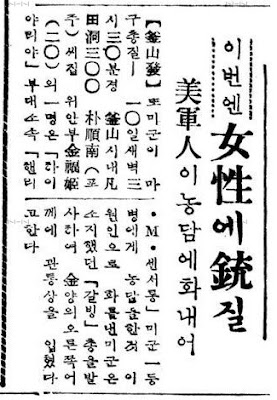 이번엔 女性에 銃질
美軍人이 농담에 화내어
【釜山發】 또 미군이 마
구총질— 一○일새벽三
시三○분경 釜山시내凡
田洞三○○ 朴順南(포
주)씨집 위안부金福姬
(二○)외一명은「하이
야리아」부대소속「핸리
·M·센서통」미군一등
병에게 농담을한것이
원인으로 화를낸미군은
소지했던「갈빙」총을발
사하여 金양의오른쪽어
깨에 관통상을 입혔다
고한다